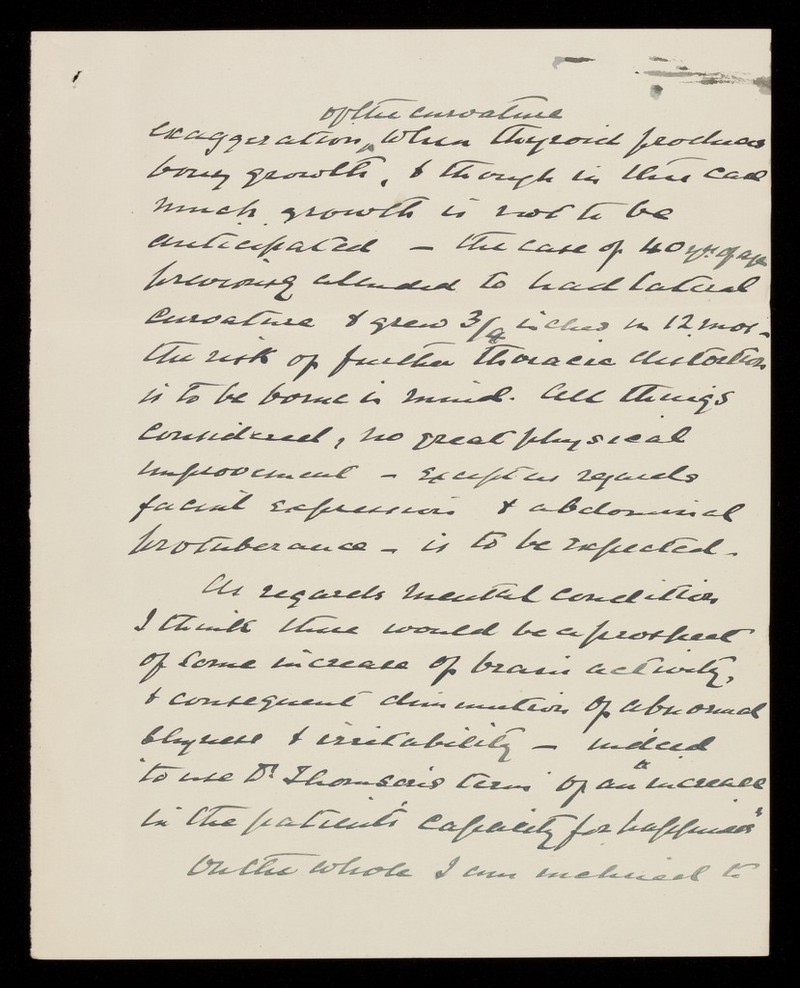 of the curvature
exaggeration ^ when thyroid produces
bony growth, & though in this case
much growth is not to be
anticipated – the case of 40 yrs. of age
previously alluded to had lateral
curvature & grew 3/4 inches in 12 mos –
the risk of further thoracic distortion
is to be borne in mind. All things
considered, no great physical
improvement – except as regards
facial expression & abdominal
protuberance – is to be expected.
As regards mental condition
I think there would be a prospect
of some increase of brain activity,
& consequent diminution of abnormal
shyness & irritability – indeed
to use Dr. Thomson's term of an "increase
in the patient's capacity for happiness"
On the whole I am inclined to